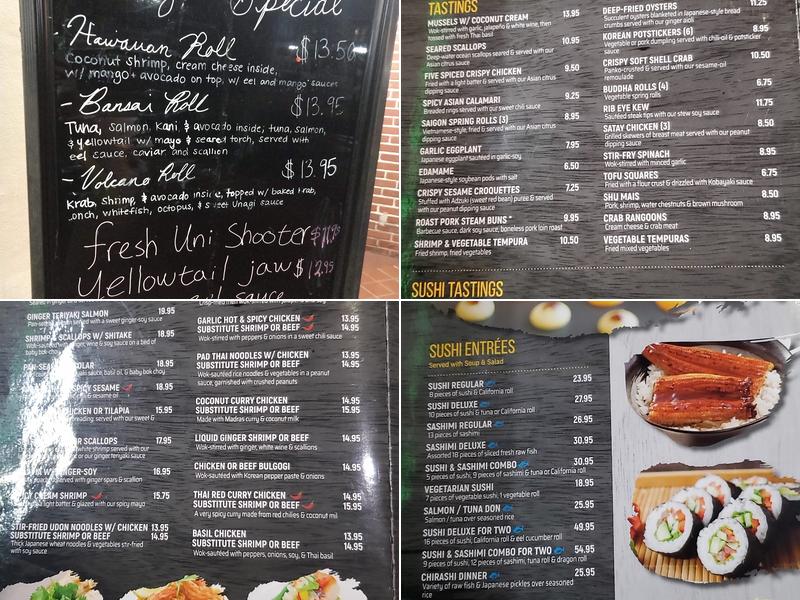 Special
- Hawaiian Roll $13.50
Coconut shrimp, cream cheese inside,
w/ mango + avocado on top, w/ eel and mango sauces
- Bansai Roll $13.95
Tuna, salmon, Kani, & avocado inside; tuna, salmon,
& yellowtail w/ mayo & seared torch, served with
eel sauce, caviar and scallion
- Volcano Roll $13.95
Krab, shrimp, & avocado inside, topped w/ baked Krab,
conch, whitefish, octopus, & sweet Unagi sauce
fresh Uni Shooter
Yellowtail jaw $12.95
sauce
TASTINGS
MUSSELS W/ COCONUT CREAM 13.95
Wok-stirred with garlic, jalapeño & white wine, then
tossed with fresh Thai basil
SEARED SCALLOPS 10.95
Deep-water ocean scallops seared & served with our
Asian citrus sauce
FIVE SPICED CRISPY CHICKEN 9.50
Fried with a light batter & served with our Asian citrus
dipping sauce
SPICY ASIAN CALAMARI 9.25
Breaded rings served with our sweet chili sauce
SAIGON SPRING ROLLS (3) 8.95
Vietnamese-style, fried & served with our Asian citrus
dipping sauce
GARLIC EGGPLANT 7.95
Japanese eggplant sautéed in garlic-soy
EDAMAME 6.50
Japanese-style soybean pods with salt
CRISPY SESAME CROQUETTES 7.25
Stuffed with Adzuki (sweet red bean) purée & served
with our peanut dipping sauce
ROAST PORK STEAM BUNS 9.95
Barbecue sauce, dark soy sauce; boneless pork loin roast
SHRIMP & VEGETABLE TEMPURA 10.50
Fried shrimp, fried vegetables
DEEP-FRIED OYSTERS 11.25
Succulent oysters blanketed in Japanese-style bread
crumbs served with our ginger aioli
KOREAN POTSTICKERS (6) 8.95
Vegetable or pork dumpling served with chili-oil & potsticker
sauce
CRISPY SOFT SHELL CRAB 10.50
Panko-crusted & served with our sesame-oil
remoulade
BUDDHA ROLLS (4) 6.75
Vegetable spring rolls
RIB EYE KEW 11.75
Sautéed steak tips with our stew soy sauce
SATAY CHICKEN (3) 8.50
Grilled skewers of breast meat served with our peanut
dipping sauce
STIR-FRY SPINACH 8.95
Wok-stirred with minced garlic
TOFU SQUARES 6.75
Fried with a flour crust & drizzled with Kobayaki sauce
SHU MAIS 8.50
Pork, shrimp, water chestnuts & brown mushroom
CRAB RANGOONS 8.95
Cream cheese & crab meat
VEGETABLE TEMPURAS 8.95
Fried mixed vegetables
SUSHI TASTINGS
GINGER TERIYAKI SALMON 19.95
served with a sweet ginger-soy sauce
SHRIMP & SCALLOPS W/ SHITAKE 18.95
wine & soy sauce on a bed of
baby bok choy
PAN-SEARED 18.95
sauce, basil oil, & baby bok choy
SPICY SESAME 18.95
CHICKEN OR TILAPIA 15.95
served with our sweet &
OR SCALLOPS 17.95
served with our
or our ginger teriyaki sauce
GINGER-SOY 16.95
served with ginger spars & scallion
CREAM SHRIMP 15.75
light batter & glazed with our spicy mayo
STIR-FRIED UDON NOODLES W/ CHICKEN 13.95
SUBSTITUTE SHRIMP OR BEEF 14.95
Thick Japanese wheat noodles & vegetables stir-fried
with soy sauce
GARLIC HOT & SPICY CHICKEN 13.95
SUBSTITUTE SHRIMP OR BEEF 14.95
Wok-stirred with peppers & onions in a sweet chili sauce
PAD THAI NOODLES W/ CHICKEN 13.95
SUBSTITUTE SHRIMP OR BEEF 14.95
Wok-sautéed rice noodles & vegetables in a peanut
sauce, garnished with crushed peanuts
COCONUT CURRY CHICKEN 14.95
SUBSTITUTE SHRIMP OR BEEF 15.95
Made with Madras curry & coconut milk
LIQUID GINGER SHRIMP OR BEEF 14.95
Wok-stirred with ginger, white wine & scallions
CHICKEN OR BEEF BULGOGI 14.95
Wok-sautéed with Korean pepper paste & onions
THAI RED CURRY CHICKEN 14.95
SUBSTITUTE SHRIMP OR BEEF 15.95
A very spicy curry made from red chilies & coconut mil
BASIL CHICKEN 13.95
SUBSTITUTE SHRIMP OR BEEF 14.95
Wok-sautéed with peppers, onions, soy, & Thai basil
SUSHI ENTRÉES
Served with Soup & Salad
SUSHI REGULAR 23.95
8 pieces of sushi & California roll
SUSHI DELUXE 27.95
10 pieces of sushi & tuna or California roll
SASHIMI REGULAR 26.95
13 pieces of sashimi
SASHIMI DELUXE 30.95
Assorted 18 pieces of sliced fresh raw fish
SUSHI & SASHIMI COMBO 30.95
5 pieces of sushi, 9 pieces of sashimi & tuna or California roll
VEGETARIAN SUSHI 18.95
7 pieces of vegetable sushi, 1 vegetable roll
SALMON / TUNA DON 25.95
Salmon / tuna over seasoned rice
SUSHI DELUXE FOR TWO 49.95
16 pieces of sushi, California roll & eel cucumber roll
SUSHI & SASHIMI COMBO FOR TWO 54.95
9 pieces of sushi, 12 pieces of sashimi, tuna roll & dragon roll
CHIRASHI DINNER 25.95
Variety of raw fish & Japanese pickles over seasoned
rice